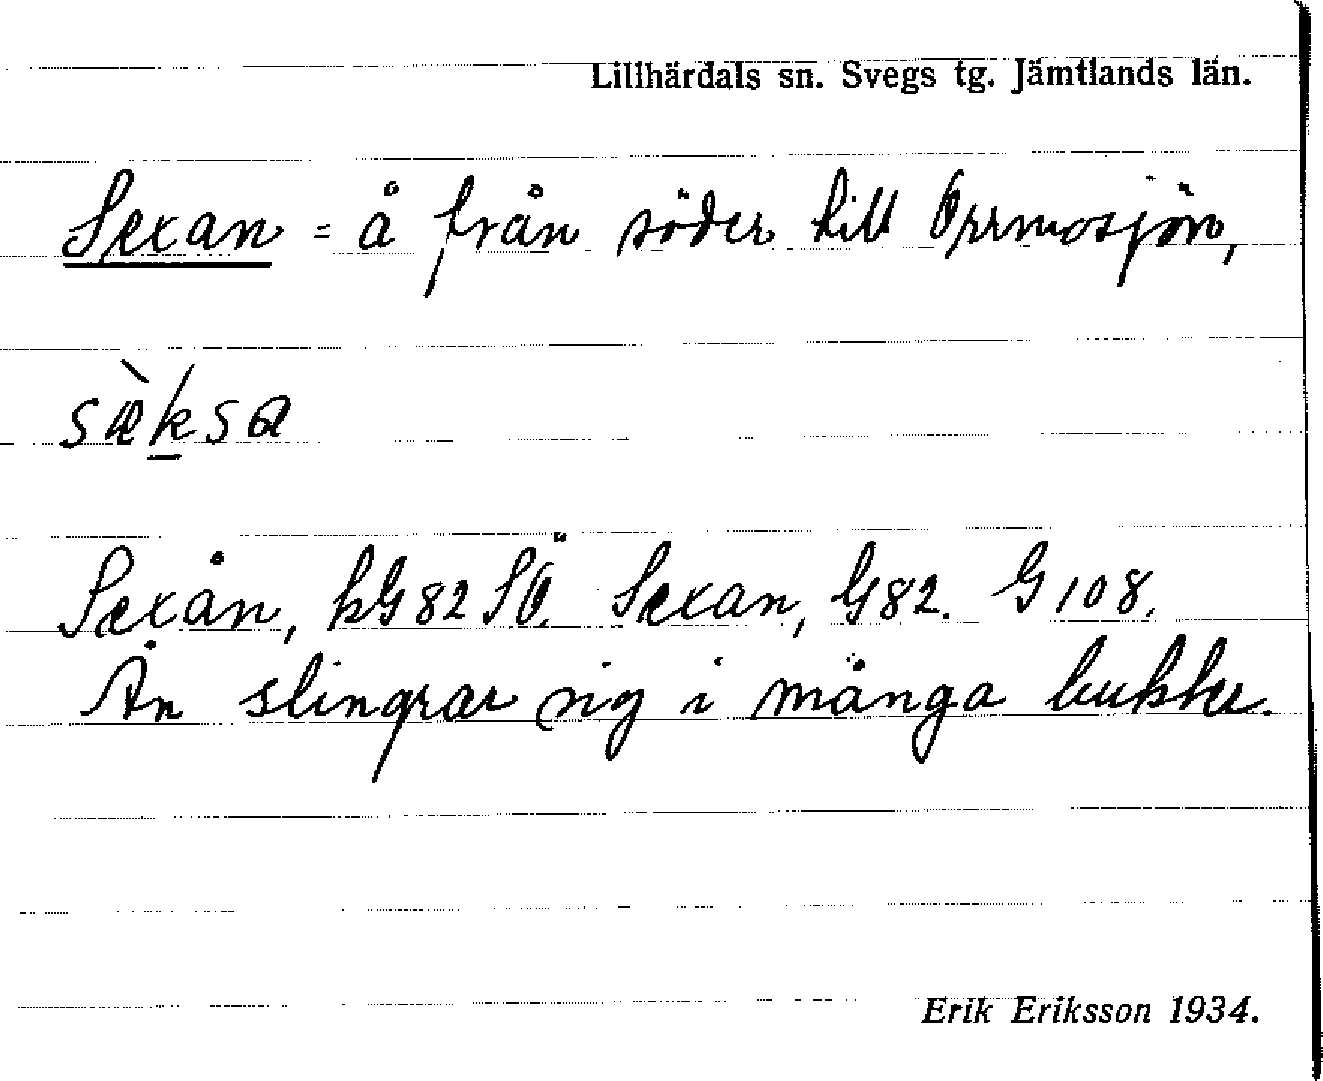 Lillhärdals sn. Svegs tg. Jämtlands län.
Sexan = å från söder till Orrmosjön,
sæ̀ksa
Sexån, kG82SÖ. Sexan, G82. G108.
Ån slingrar sig i många bukter.
Erik Eriksson 1934.